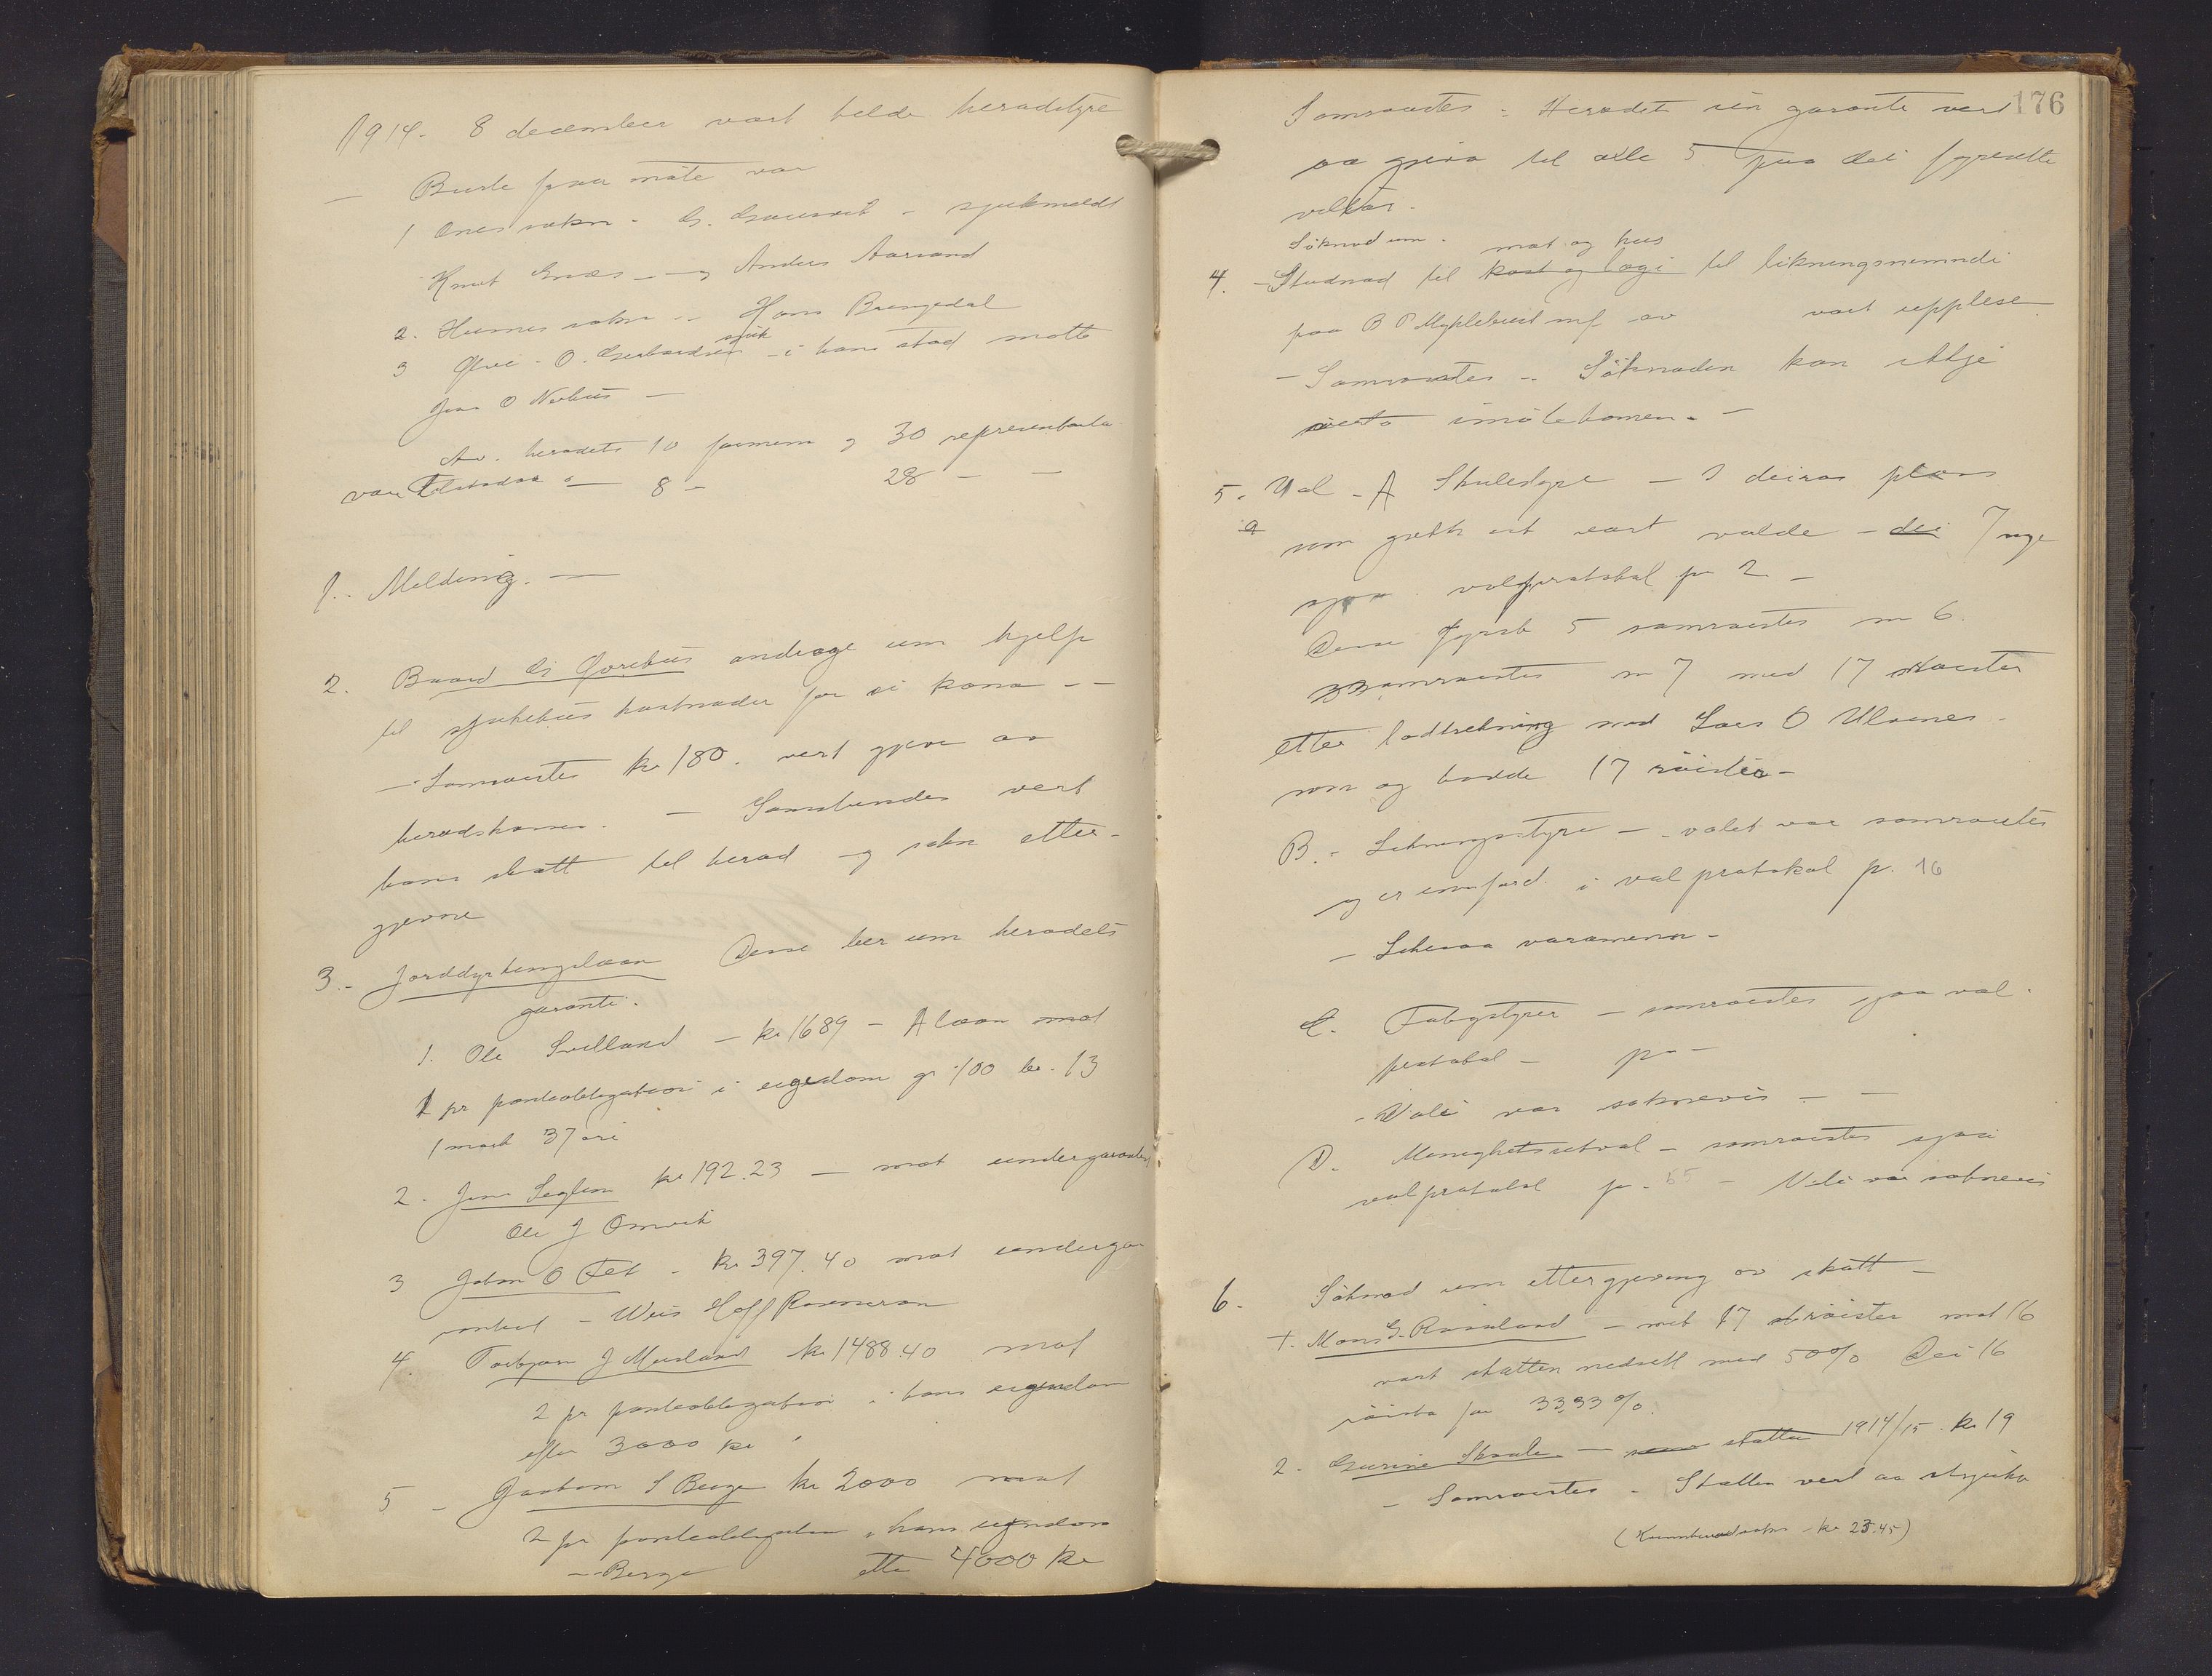 1914. 8 december vart helde heradstyre
— Burte fraa møte var
1 Ænes sokn - G. Gausvik - sjukmeldt
Knut Enæs — og Anders Aarsand
2. Husnes sokn — Hans Brengedal
3 Ølve - O. Gerhardsen sjuk - i hans stad møtte
Jens O Nerhus —
Av heradets 10 formenn og 30 representantar
var tilstades — 8 — 28 — —
1. Melding. —
2. Baard GØrehus andrage um hjelp
til sjukehus kostnader for si kona — —
— Samrøistes kr 180. vert gjeve av
heradskassen. — Samstundes vert
hans skatt til herad og sokn etter-
gjevne
3. Jorddyrkingslaan Desse ber um heradets
garanti.
1. Ole Sulland — kr 1689 — A laan mot
1 pr panteobligation i eigedom gr 100 br. 13
1 mark 37 øri
2. Jens Seglem kr 192.23 — mot undergarantist
Ole J Omvik
3 Johan O Fet - kr 397.40 mot undergar
antist - Hoff Rosenkron
4. Torbjørn J Musland kr 1488.40 mot
2 pr panteobligation i hans eigendom
efter 3000 kr
5 - Joakim S Berge kr 2000 mot
2 pr panteobligation i hans eigendom
— Berge etter 4000 kr
176
Samraadtes: Heradets garanti vert
aa gjeva til alle 5 paa dei fyresette
vilkår.
Söknad um. mat og hus
4. - Studnad til kost og logi til likningsnemndi
paa B P Myklebust mf av vart upplese
- Samrøistes - Søknaden kan ikkje
imøtekomen. —
5. Val - A Skulestyre — I deiras plass
a som gjekk ut vart valde - dei 7 nye
sjaa valprotokol p 2 —
Desse fyrste 5 samrøistes nr 6.
samrøistes nr 7 med 17 røister
etter lodtrekning med Lars O Ulvenes
som og hadde 17 røister -
B. - Likningsstyre — valet var samrøistes
og er innført i valprotokol p. 16
— Likesaa varamenn —
C. Fatigstyrer — samrøistes sjaa val-
protokol — p —
- Vale var soknevis — —
D. Menighetsutval — samrøistes sjaa
valprotokol p. 55 — Vale var soknevis
6. Söknad um ettergjeving av skatt —
+. Mons G. Røssland — mit 17 røister mot 16
vart skatten nedsett med 50% Dei 16
røista for 33,33%.
2. Gurine Skaale — skatten 1914/15. kr 19
— Samrøistes - Skatten vert aa stryka
(Kvinnherad sokn - kr 23.45)